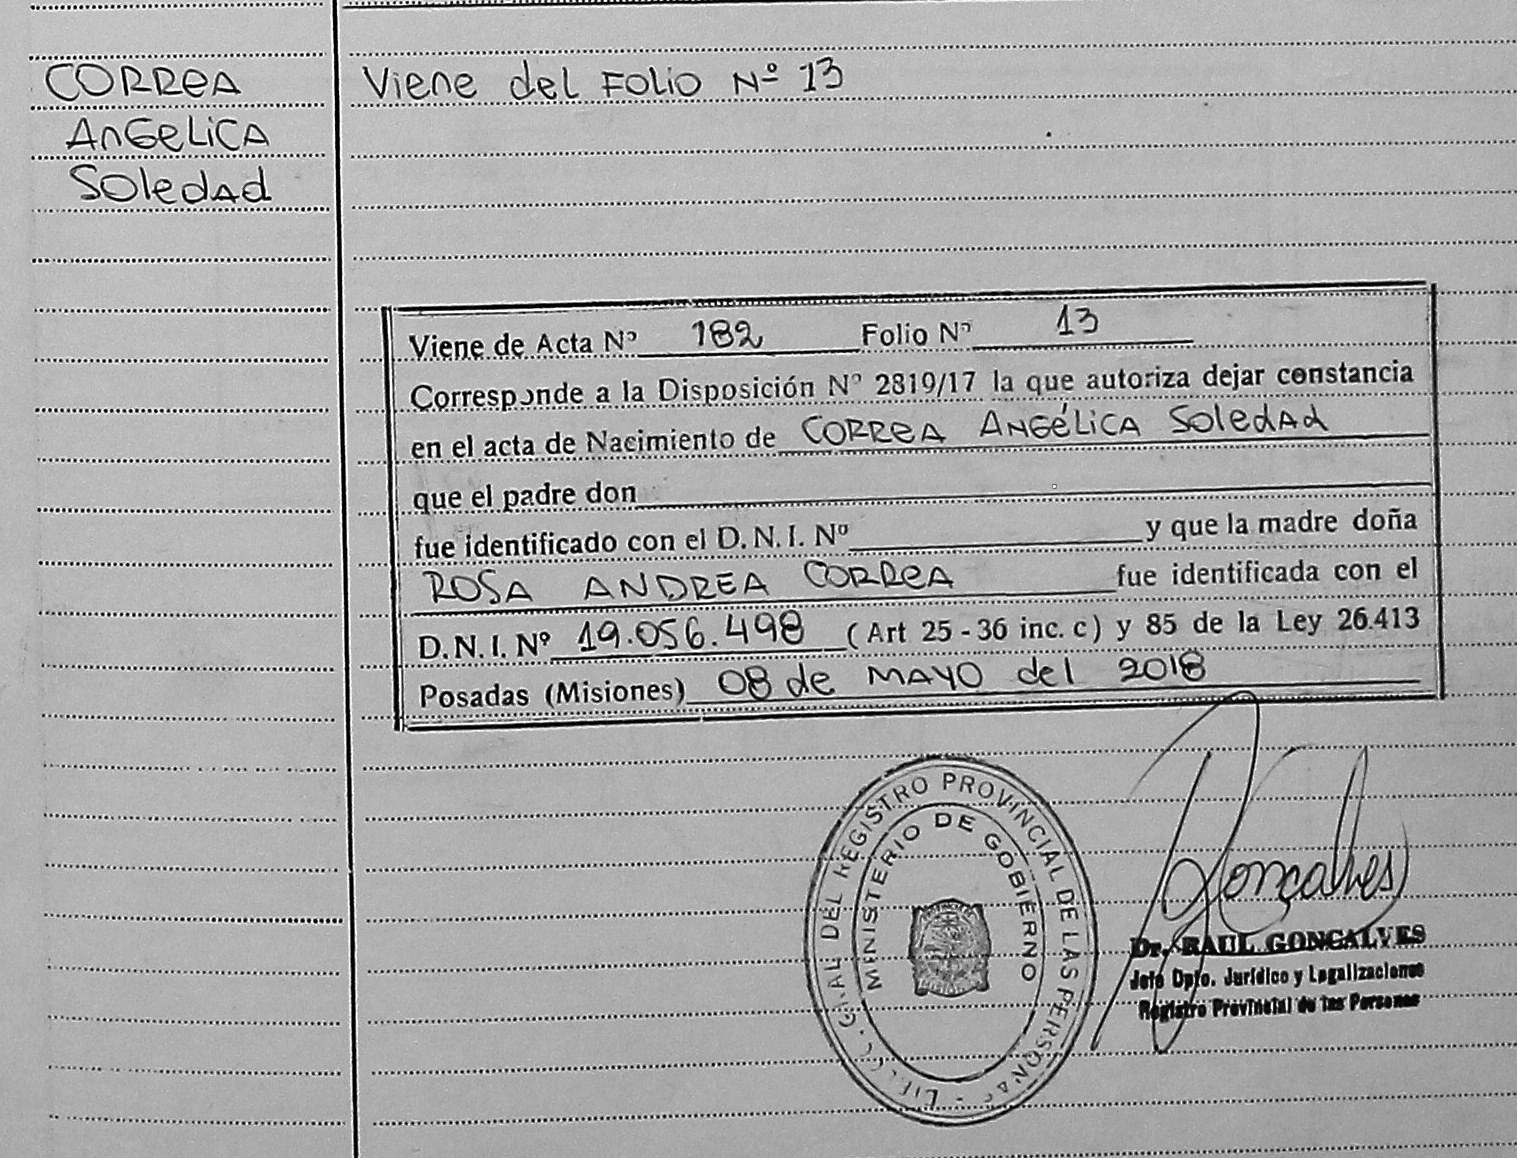 CORREA
ANGELICA
Soledad
Viene del Folio Nº 13
Viene de Acta Nº 182 Folio Nº 13
Corresponde a la Disposición Nº 2819/17 la que autoriza dejar constancia
en el acta de Nacimiento de CORREA ANGÉLICA Soledad
que el padre don
fue identificado con el D.N.I. Nº y que la madre doña
ROSA ANDREA CORREA fue identificada con el
D.N.I. Nº 19.056.498 (Art 25 - 36 inc. c) y 85 de la Ley 26.413
Posadas (Misiones) 08 de MAYO del 2018
GRAL DEL REGISTRO PROVINCIAL DE LAS PERSONAS
MINISTERIO DE GOBIERNO
Gonçalves
Dr. RAUL GONCALVES
Jefe Dpto. Jurídico y Legalizaciones
Registro Provincial de las Personas